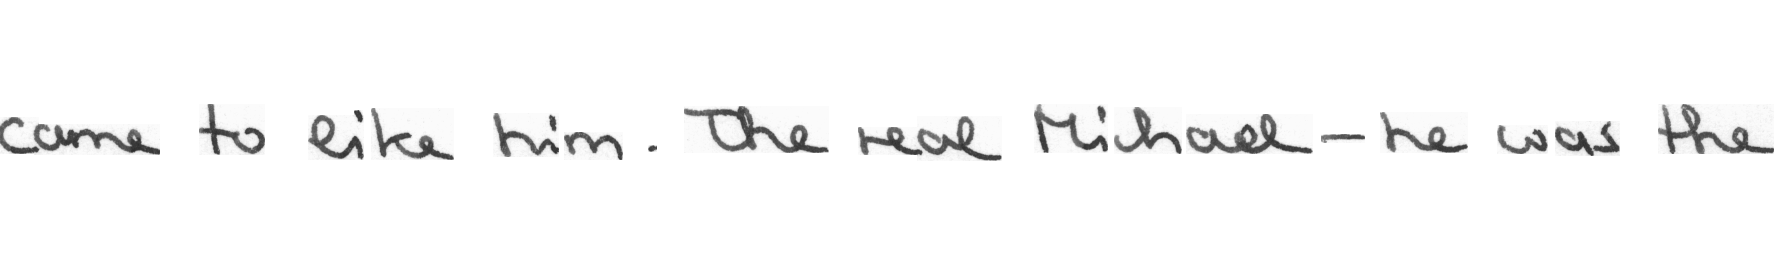 came to like him. The real Michael - he was the